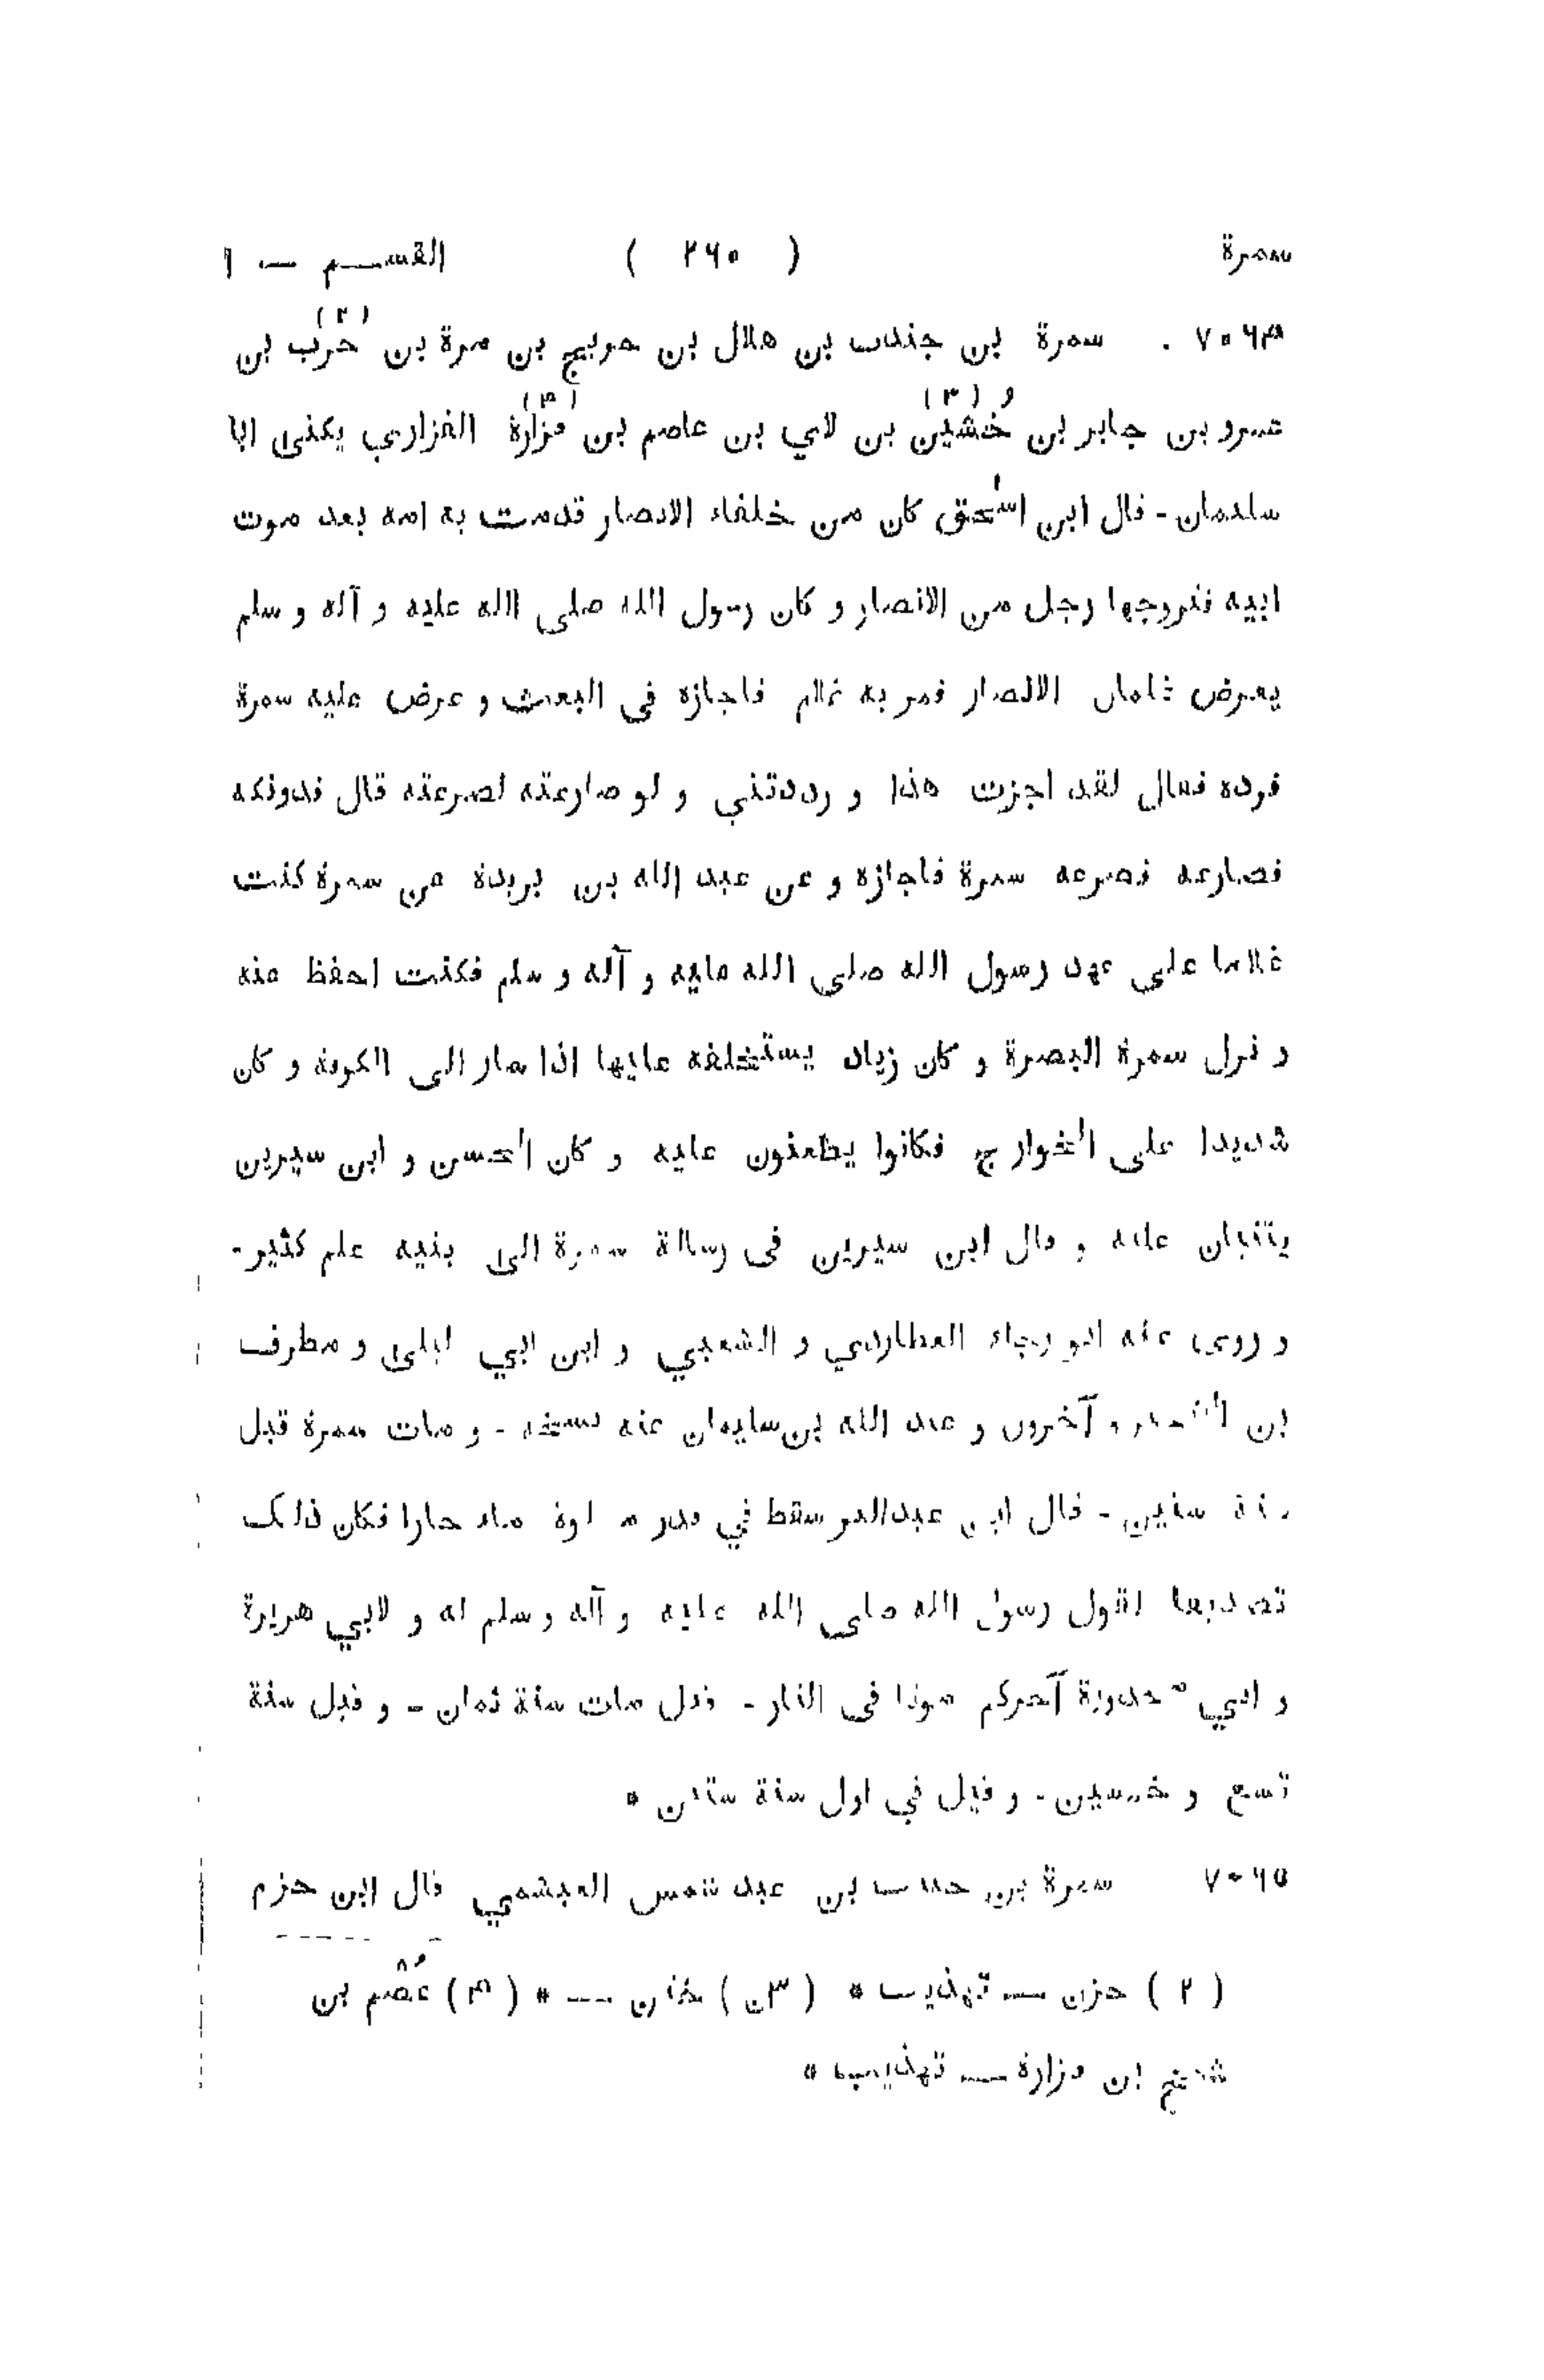 سمرة ( ٢٦٠ ) القســم — ١
٧٠٦٤ . سمرة بن جندب بن هلال بن حريج بن مرة بن حَرْب (٢) بن
عمرو بن جابر بن خُشَين (٣) بن لاي بن عاصم بن فزارة (٤) الفزاري يكنى ابا
سليمان - قال ابن اسحٰق كان من خلفاء الانصار قدمت به امه بعد موت
ابيه فتزوجها رجل من الانصار و كان رسول الله صلى الله عليه و آله و سلم
يعرض غلمان الانصار فمر به غلام فاجازه فى البعث و عرض عليه سمرة
فرده فقال لقد اجزت هذا و رددتني و لو صارعته لصرعته قال فدونكه
فصارعه فصرعه سمرة فاجازه و عن عبد الله بن بريدة عن سمرة كنت
غلاما على عهد رسول الله صلى الله عليه و آله و سلم فكنت احفظ عنه
و نزل سمرة البصرة و كان زياد يستخلفه عليها اذا سار الى الكوفة و كان
شديدا على الخوارج فكانوا يطعنون عليه و كان الحسن و ابن سيرين
يثنيان عليه و قال ابن سيرين فى رسالة سمرة الى بنيه علم كثير -
و روى عنه ابو رجاء العطاردي و الشعبي و ابن ابي ليلى و مطرف
بن الشخير و آخرون و عبد الله بن سليمان عنه نسخه - و مات سمرة قبل
سنة ستين - قال ابن عبد البر سقط في قدر مملوة ماء حارا فكان ذلك
تصديقا لقول رسول الله صلى الله عليه و آله و سلم له و لابي هريرة
و ابي محذورة آخركم موتا فى النار - قيل مات سنة ثمان - و قيل سنة
تسع و خمسين - و قيل في اول سنة ستين *
٧٠٦٥ سمرة بن حبيب بن عبد شمس العبشمي قال ابن حزم
( ٢ ) حزن — تهذيب * ( ٣ن ) — * ( ٤ ) بن
بن فزارة — تهذيب *